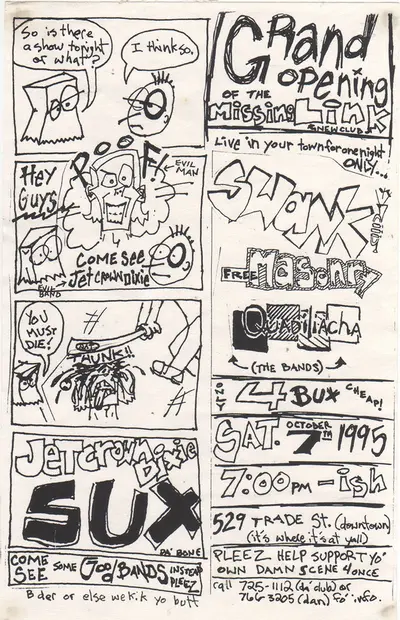 So is there
a show tonight
or what?
I think so,
POOF!
HEY
GUYS
EVIL
MAN
COME SEE
Jetcrowndixie
EVIL
BAND
YOU
MUST
DIE!
THUNK!!
Jetcrown
Dixie
SUX
DA' BONE
COME
SEE
SOME
GOOD BANDS
INSTEAD
PLEEZ
B der or else we kik yo butt
GRAND
OPENING
OF THE
Missing LINK
A NEW CLUB
Live in your town for one night
ONLY...
SWANK
FREE MASONRY
QUADILIACHA
(THE BANDS)
4 BUX CHEAP!
SAT. OCTOBER 7TH 1995
7:00PM - ish
529 TRADE ST. (downtown)
(it's where it's at yall)
PLEEZ HELP SUPPORT YO'
OWN DAMN SCENE 4 ONCE
call 725-1112 (da' club) or
766-3205 (dan) fo' info.